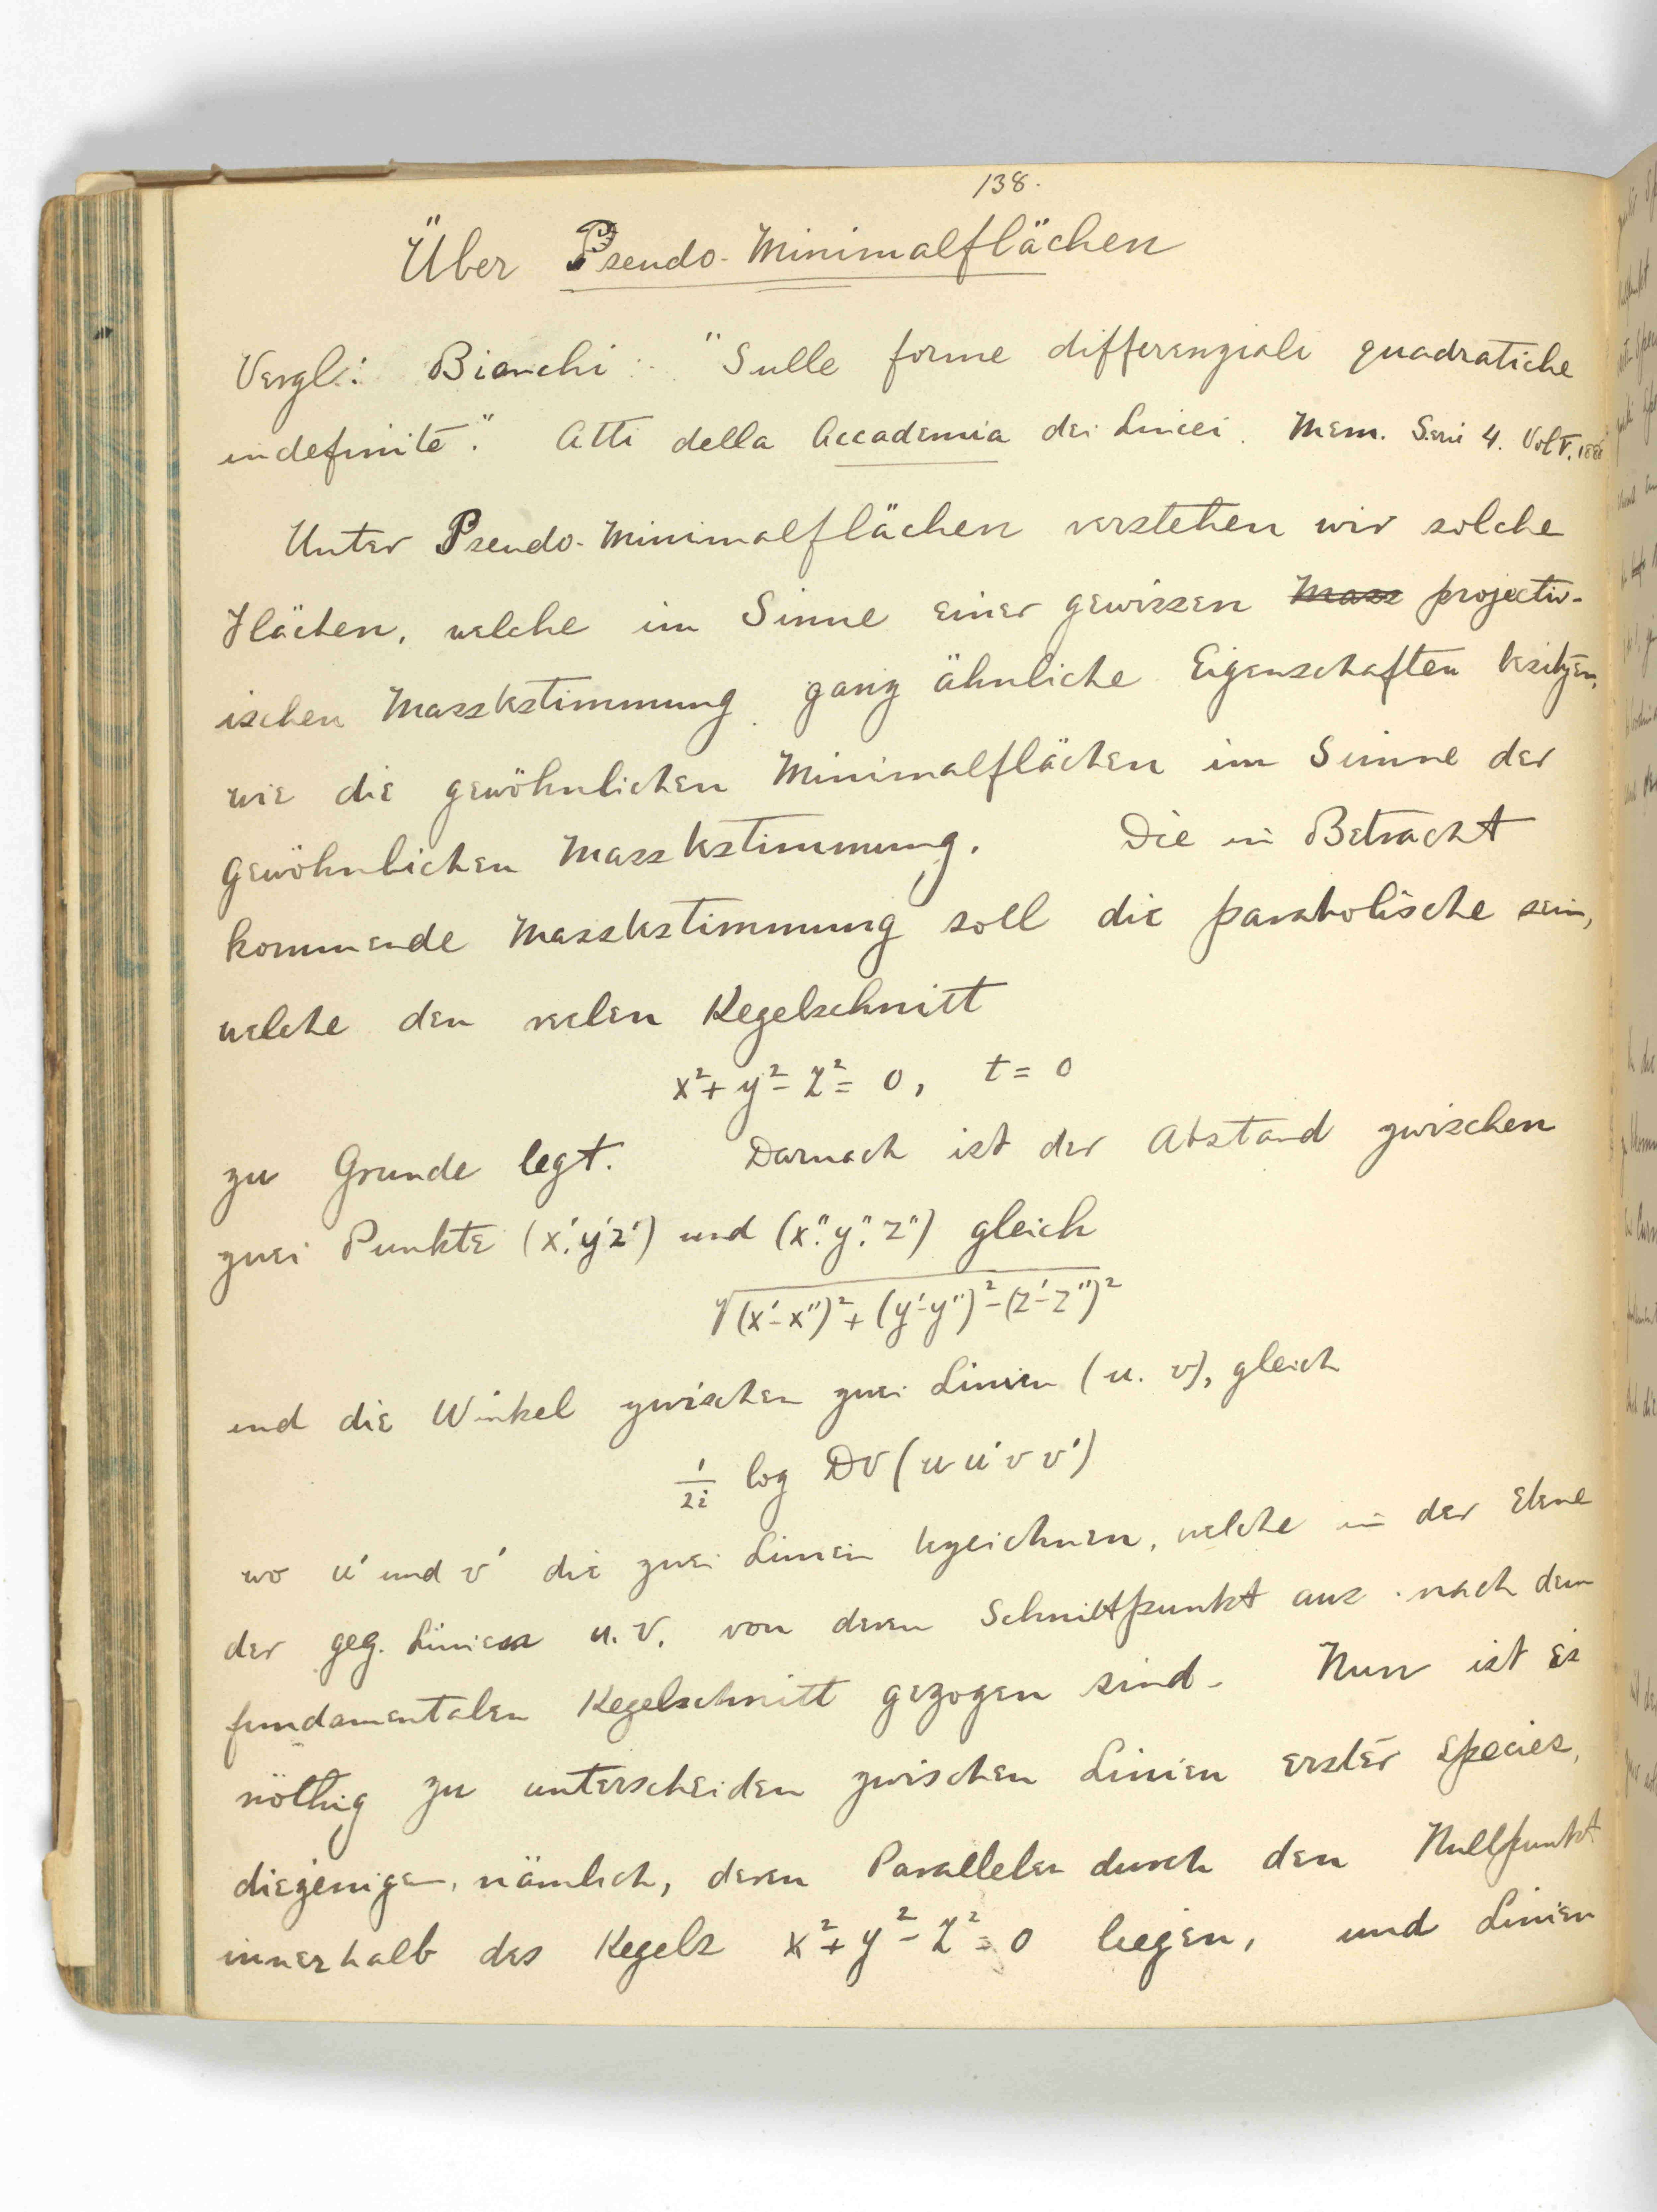 138.
Über Pseudo-Minimalflächen
Vergl.: Bianchi: "Sulle forme differenziali quadratiche
indefinite." Atti della Accademia dei Lincei. Mem. Seri 4. Vol V. 1888
Unter Pseudo-Minimalflächen verstehen wir solche
Flächen, welche im Sinne einer gewissen ~~Mass~~ projectiv-
ischen Massbestimmung ganz ähnliche Eigenschaften besitzen,
wie die gewöhnlichen Minimalflächen im Sinne der
gewöhnlichen Massbestimmung. Die in Betracht
kommende Massbestimmung soll die parabolische sein,
welche den reelen Kegelschnitt
x² + y² - z² = 0, t = 0
zu Grunde legt. Darnach ist der Abstand zwischen
zwei Punkte (x'.y'z') und (x".y".z") gleich
√(x'-x")² + (y'-y")² - (z'-z")²
und die Winkel zwischen zwei Linien (u. v), gleich
1/2i log DV (u u' v v')
wo u' und v' die zwei Linien bezeichnen, welche in der Ebene
der geg. Linien u. v. von deren Schnittpunkt aus nach dem
fundamentalen Kegelschnitt gezogen sind. Nun ist es
nöthig zu unterscheiden zwischen Linien erster Species,
diejenigen, nämlich, deren Parallelen durch den Nullpunkt
innerhalb des Kegels x² + y² - z² = 0 liegen, und Linien